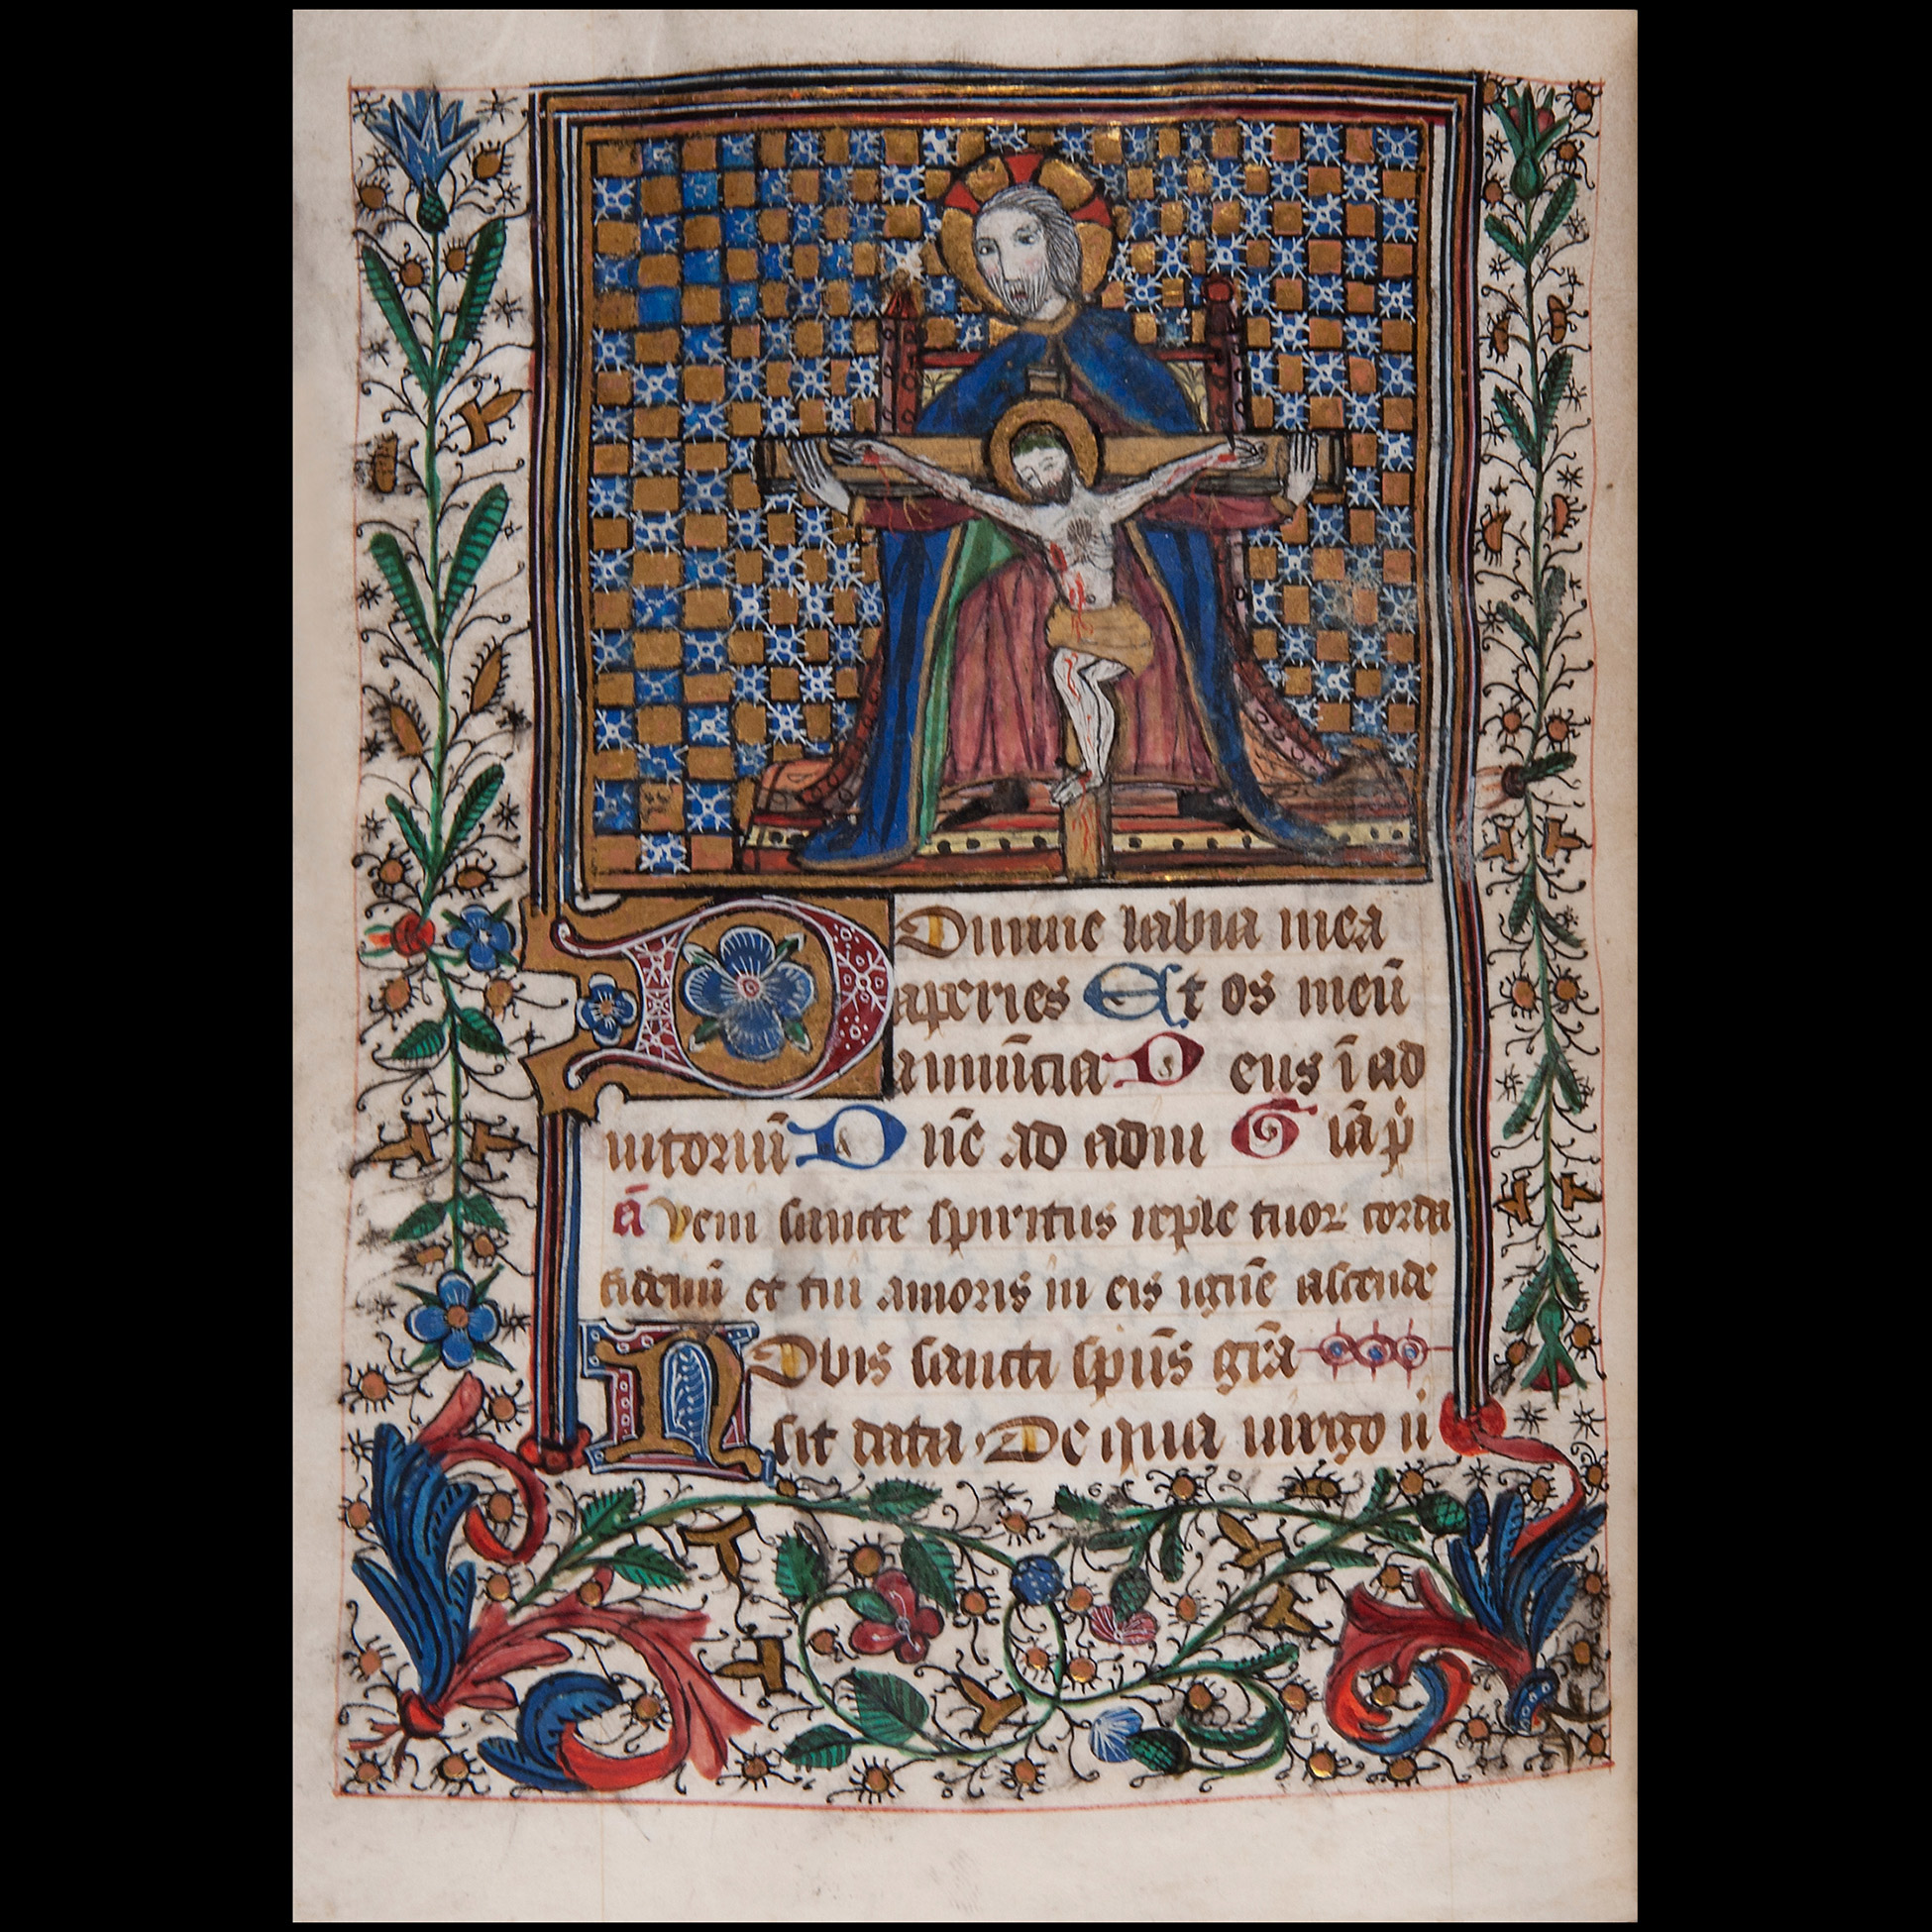 Domine labia mea
aperies Et os meū
annūcia Deus ī ad
iutoriū Dn̄e ad adiu Gl̄ia p̄
ā Veni sancte spiritus reple tuoꝝ corda
fideliū et tui amoris in eis ignē ascende
Nobis sancti sp̄us gr̄a
sit data De qua uirgo ii